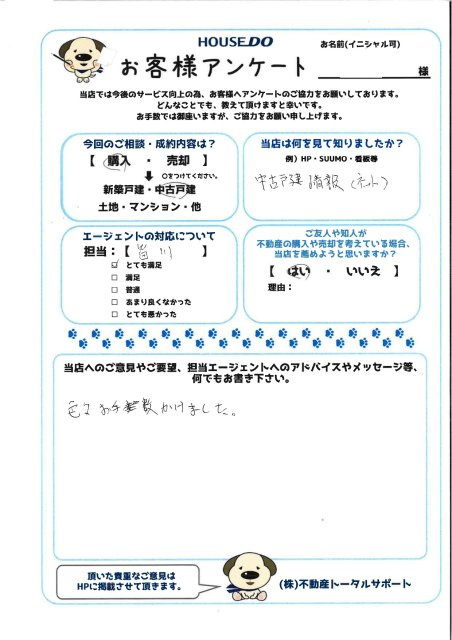 HOUSEDO
お名前(イニシャル可)
お客様アンケート
様
当店では今後のサービス向上の為、お客様へアンケートのご協力をお願いしております。
どんなことでも、教えて頂けますと幸いです。
お手数では御座いますが、ご協力をお願い申し上げます。
今回のご相談・成約内容は?
【 購入 ・ 売却 】
○をつけてください。
新築戸建・中古戸建
土地・マンション・他
当店は何を見て知りましたか?
例)HP・SUUMO・看板等
中古戸建 情報(ネット)
エージェントの対応について
担当:【 皆川 】
☑ とても満足
□ 満足
□ 普通
□ あまり良くなかった
□ とても悪かった
ご友人や知人が
不動産の購入や売却を考えている場合、
当店を薦めようと思いますか?
【 はい ・ いいえ 】
理由:
当店へのご意見やご要望、担当エージェントへのアドバイスやメッセージ等、
何でもお書き下さい。
色々お手数かけました。
頂いた貴重なご意見は
HPに掲載させて頂きます。
(株)不動産トータルサポート